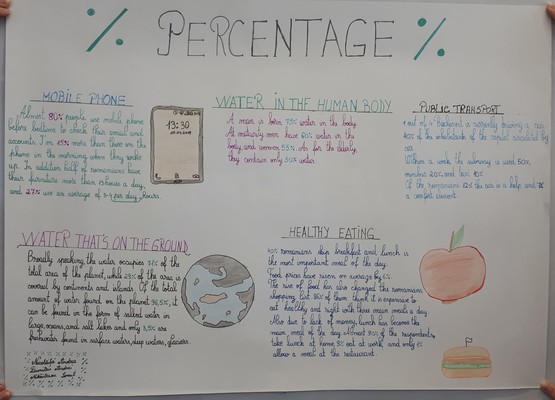 % PERCENTAGE %
MOBILE PHONE
Almost 80% people use mobile phone
before bedtime to check their email and
accounts. I'm 45% more than them on the
phone in the morning, when they wake
up. In addition half of romanians have
their furniture more than 15 hours a day,
and 27% use an average of 3-4 per day hours.
13:30
WATER IN THE HUMAN BODY
A man is born 75% water in the body.
At maturity men have 60% water in the
body, and women 55%. As for the elderly,
they contain only 50% water.
PUBLIC TRANSPORT
1 out of 4 Bucharest is normally driving a
40% of the inhabitants of the capital
car
Within a week the subway is used 50%,
20% and taxi 10%
Of the romanians 12% the car is a help and 7%
a comfort element.
WATER THAT'S ON THE GROUND
Broadly speaking, the water occupies 71% of the
total area of the planet, while 29% of the area is
covered by continents and islands. Of the total
amount of water found on the planet 96,5%, it
can be found in the form of salted water in
large oceans, and salt lakes and only 3,5% are
freshwater found in surface waters, deep waters, glaciers.
HEALTHY EATING
40% romanians skip breakfast and lunch is
the most important meal of the day.
Food prices have risen on average by 6%.
The rise of food has also changed the romanians
shopping list. 86% of them think it is expensive to
eat healthy and right with three main meals a day.
Also due to lack of money, lunch has become the
main meal of the day. Almost 90% of the respondents,
take lunch at home, 8% eat at work, and only 2%
allow a meal at the restaurant.